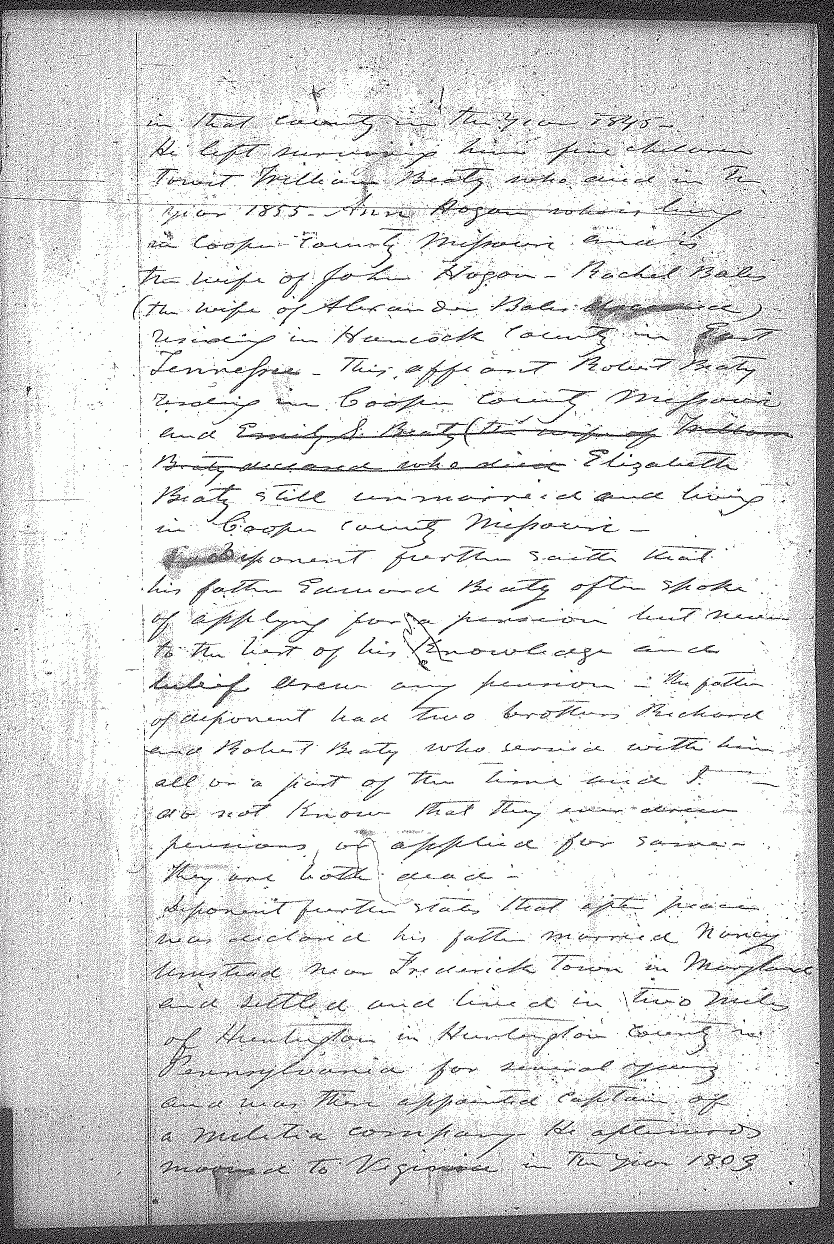 in that county in the year 1845-
He left surviving him five children
Towit William Beaty who died in the
year 1855- Ann Hogan who is living
in Cooper County Missouri and is
the wife of John Hogan - Rachel Bales
(the wife of Alexander Bales deceased)
residing in Hancock County in East
Tennessee - This affiant Robert Beaty
residing in Cooper County Missouri
and Emily S. Beaty (the wife of William
Beaty deceased who died Elizabeth
Beaty still unmarried and living
in Cooper county Missouri -
Deponent further saith that
his father Edward Beaty often spoke
of applying for a pension but never
to the best of his knowledge and
belief drew any pension - the father
of deponent had two brothers Richard
and Robert Beaty who served with him
all or a part of the time and I
do not know that they ever drew
pensions or applied for same -
They are both dead -
Deponent further states that after peace
was declared his father married Nancy
Umstead near Frederick Town in Maryland
and settled and lived in two miles
of Huntington in Huntington County in
Pennsylvania for several years
and was then appointed Captain of
a militia company - He afterwards
moved to Virginia in the year 1803